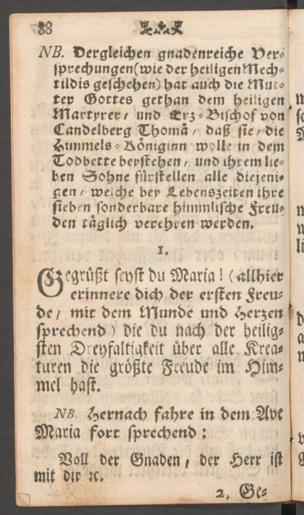 88
NB. Dergleichen gnadenreiche Ver-
sprechungen (wie der heiligen Mech-
tildis geschehen) hat auch die Mut-
ter Gottes gethan dem heiligen
Martyrer, und Erz-Bischof von
Candelberg Thomâ, daß sie, die
Himmels-Königinn wolle in dem
Todbette beystehen, und ihrem lie-
ben Sohne fürstellen alle diejeni-
gen, welche bey Lebenszeiten ihre
sieben sonderbare himmlische Freu-
den täglich verehren werden.
1.
Gegrüßt seyst du Maria! (allhier
erinnere dich der ersten Freu-
de, mit dem Munde und Herzen
sprechend) die du nach der heilig-
sten Dreyfaltigkeit über alle Krea-
turen die größte Freude im Him-
mel hast.
NB. Hernach fahre in dem Ave
Maria fort sprechend:
Voll der Gnaden, der Herr ist
mit dir ꝛc.
2. Ge-